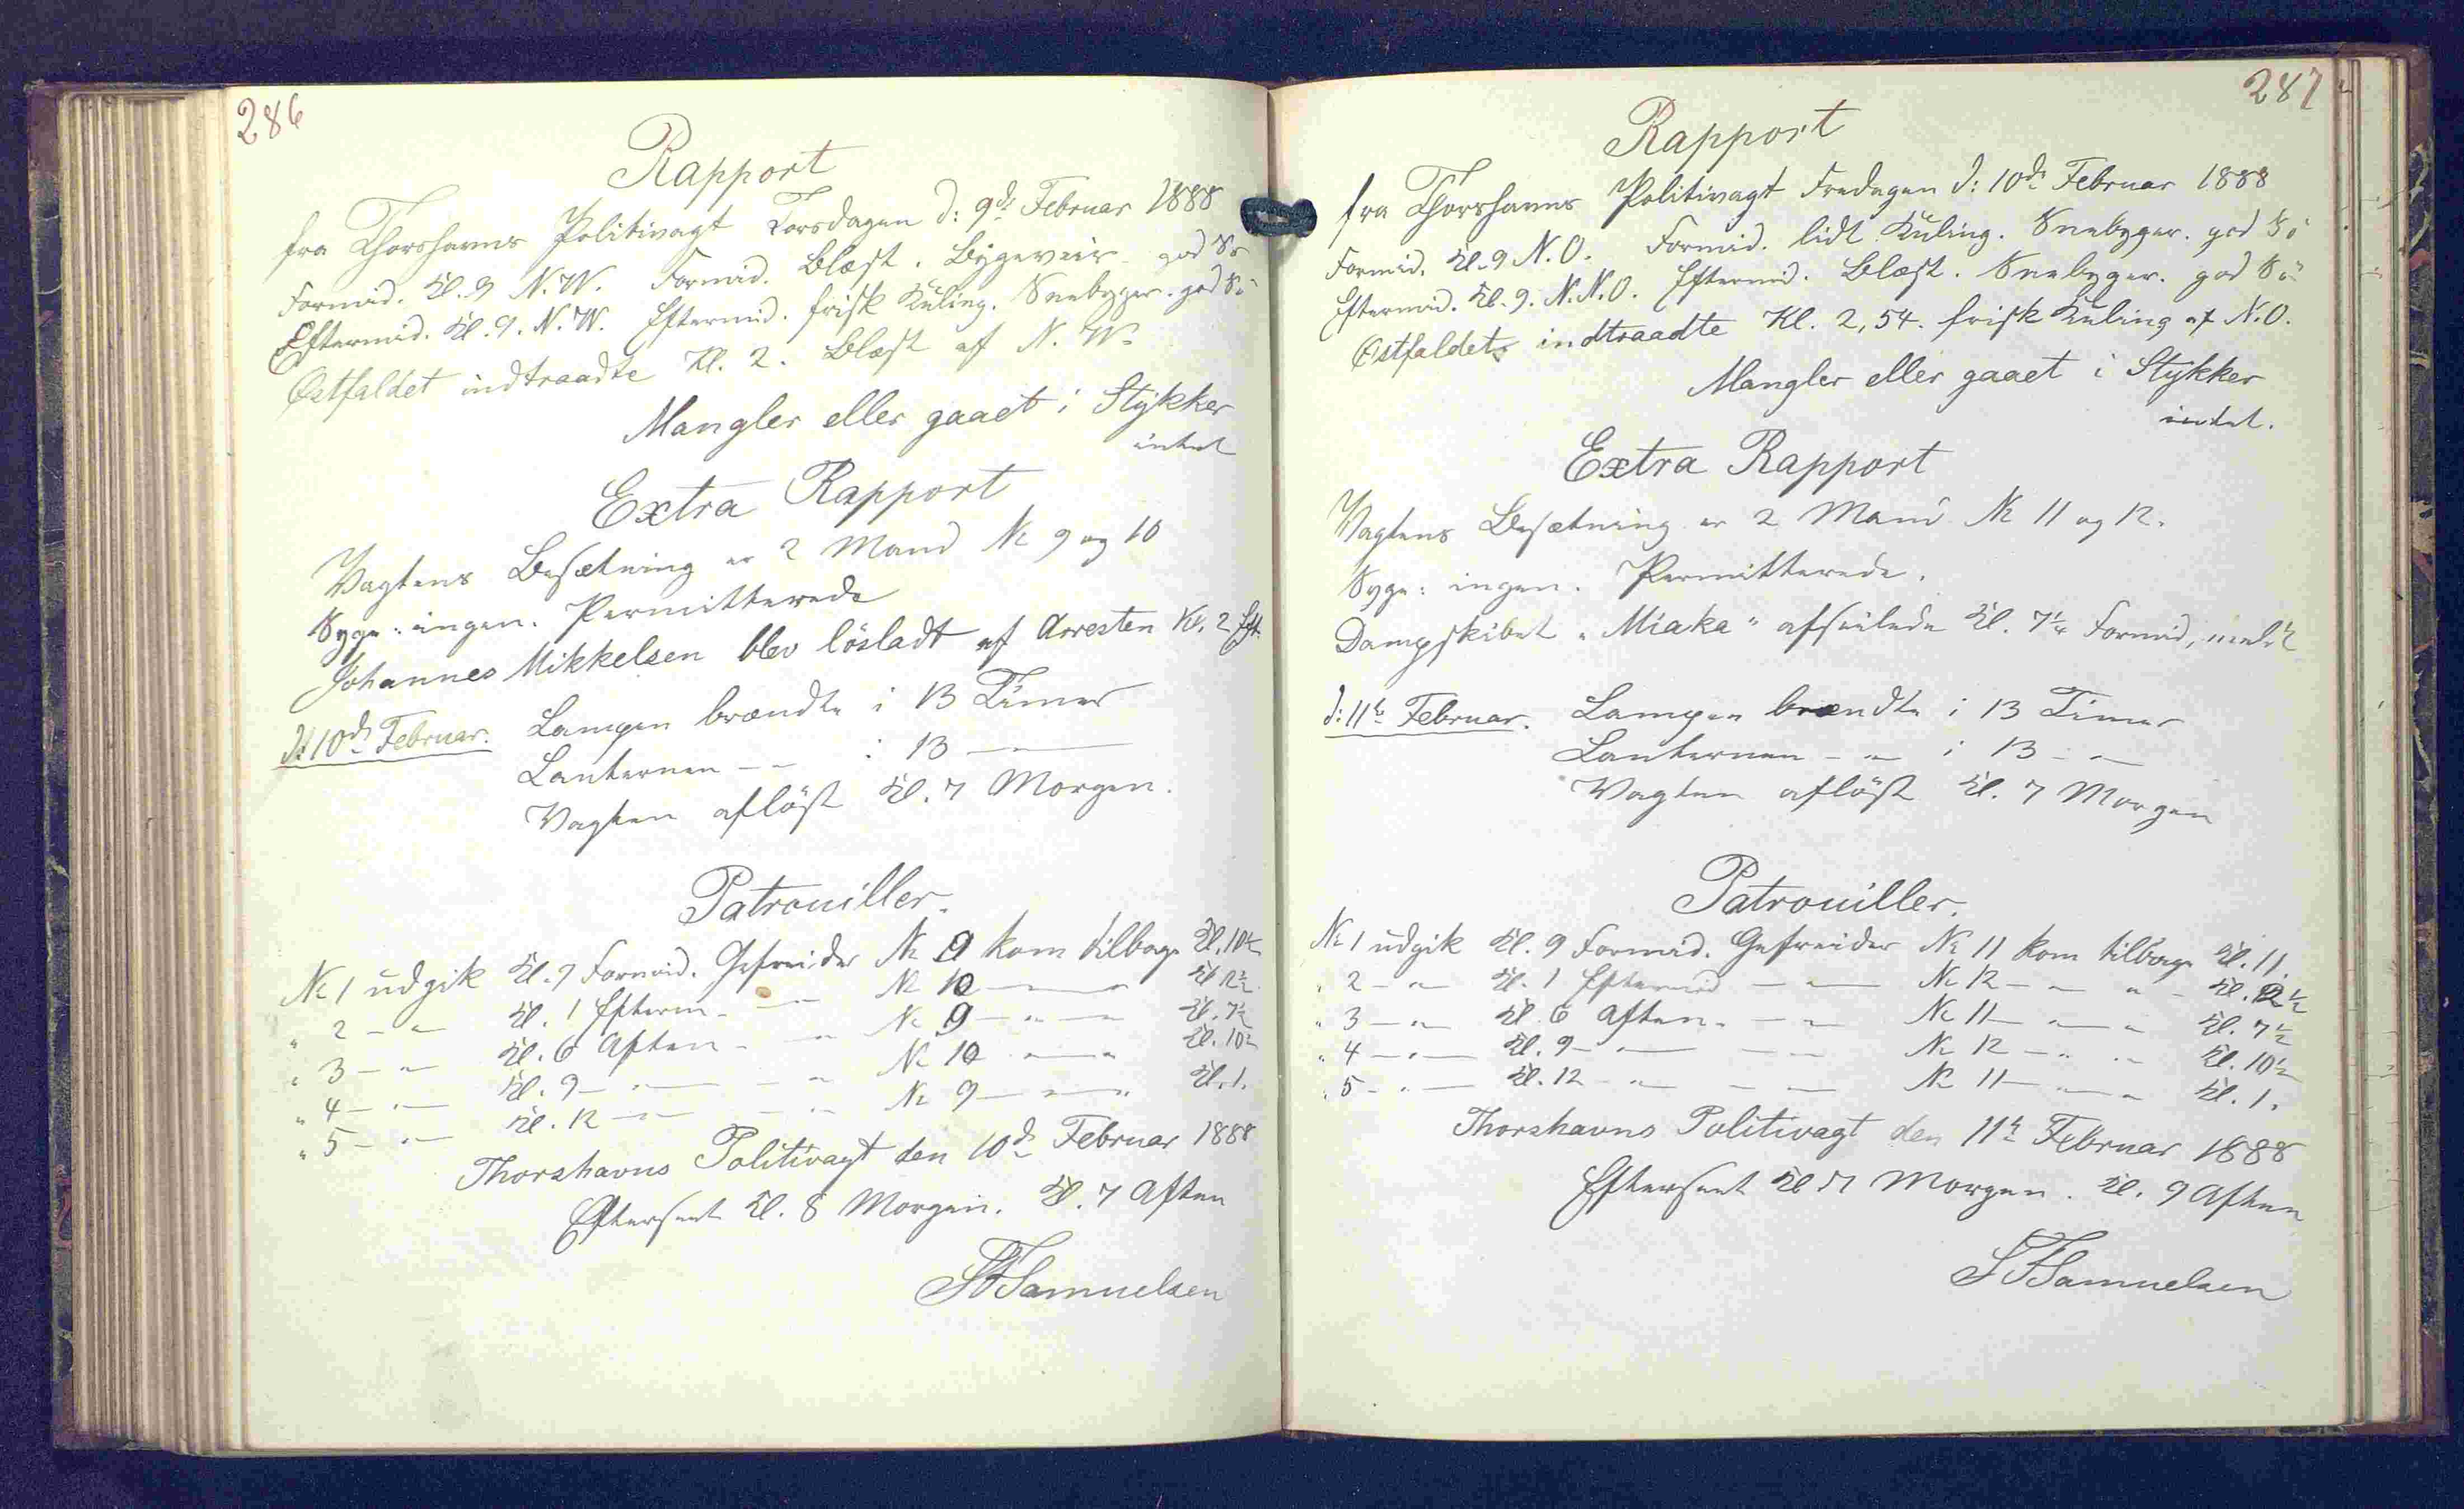 286
Rapport
fra Thorshavns Politivagt Torsdagen d: 9de Februar 1888
Formid. Kl. 9 N.W. Formid. Blæst. Bygeveir. god Sö
Eftermid. Kl. 9. N.W. Eftermid. frisk Kuling. Snebyger. god Sö
Østfaldet indtraadte Kl. 2. Blæst af N.W.
Mangler eller gaaet i Stykker
intet
Extra Rapport
Vagtens Besætning er 2 Mand No 9 og 10
Syge: ingen. Permitterede
Johannes Mikkelsen blev lösladt af Arresten Kl. 2 Eft.
d: 10de Februar. Lampen brændte i 13 Timer
Lanternen – – i 13 — " —
Vagten aflöst Kl. 7 Morgen.
Patrouiller.
No 1 udgik Kl. 9 Formid. Gefreider No 9 kom tilbage Kl. 10½
" 2 – " – Kl. 1 Efterm. – " – No 10 – " – " Kl. 12½
" 3 – " – Kl. 6 Aften – " – No 9 – " – " – Kl. 7½
" 4 – " – Kl. 9 – " – – " – No 10 – " – " Kl. 10½
" 5 – " – Kl. 12 – " – – " – No 9 – " – " Kl. 1.
Thorshavns Politivagt den 10de Februar 1888
Efterseet Kl. 8 Morgen. Kl. 7 Aften
Samuelsen
287
Rapport
fra Thorshavns Politivagt Fredagen d: 10de Februar 1888
Formid. Kl. 9 N.O. Formid. lidt Kuling. Snebyger. god Sö
Eftermid. Kl. 9. N.N.O. Eftermid. Blæst. Snebyger. god Sö
Østfaldet indtraadte Kl. 2,54. frisk Kuling af N.O.
Mangler eller gaaet i Stykker
intet.
Extra Rapport
Vagtens Besætning er 2 Mand No 11 og 12.
Syge: ingen. Permitterede.
Dampskibet „Miaka" afseilede Kl. 7¼ Formid, meldt
d: 11te Februar. Lampen brændte i 13 Timer
Lanternen – " – i 13 – " –
Vagten aflöst Kl. 7 Morgen
Patrouiller.
No 1 udgik Kl. 9 Formid. Gefreider No 11 kom tilbage Kl. 11.
" 2 – " – Kl. 1 Eftermid – " – No 12 – " – " – Kl. 2½
" 3 – " – Kl. 6 Aften. – " – No 11 – " – " Kl. 7½
" 4 – " – Kl. 9 – " – – " – No 12 – " – " – Kl. 10½
" 5 – " – Kl. 12 – " – – " – No 11 – " – " Kl. 1.
Thorshavns Politivagt den 11te Februar 1888
Efterseet Kl 7 Morgen. Kl. 9 Aften
Samuelsen